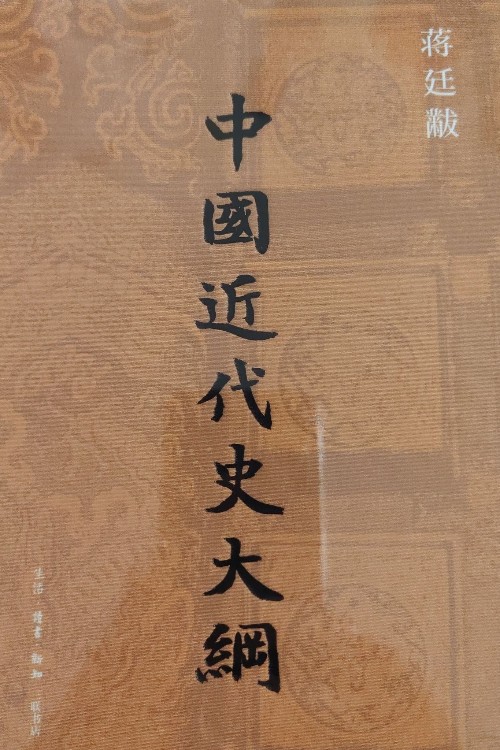 蒋廷黻
中國近代史大綱
生活 讀書 新知 联书店